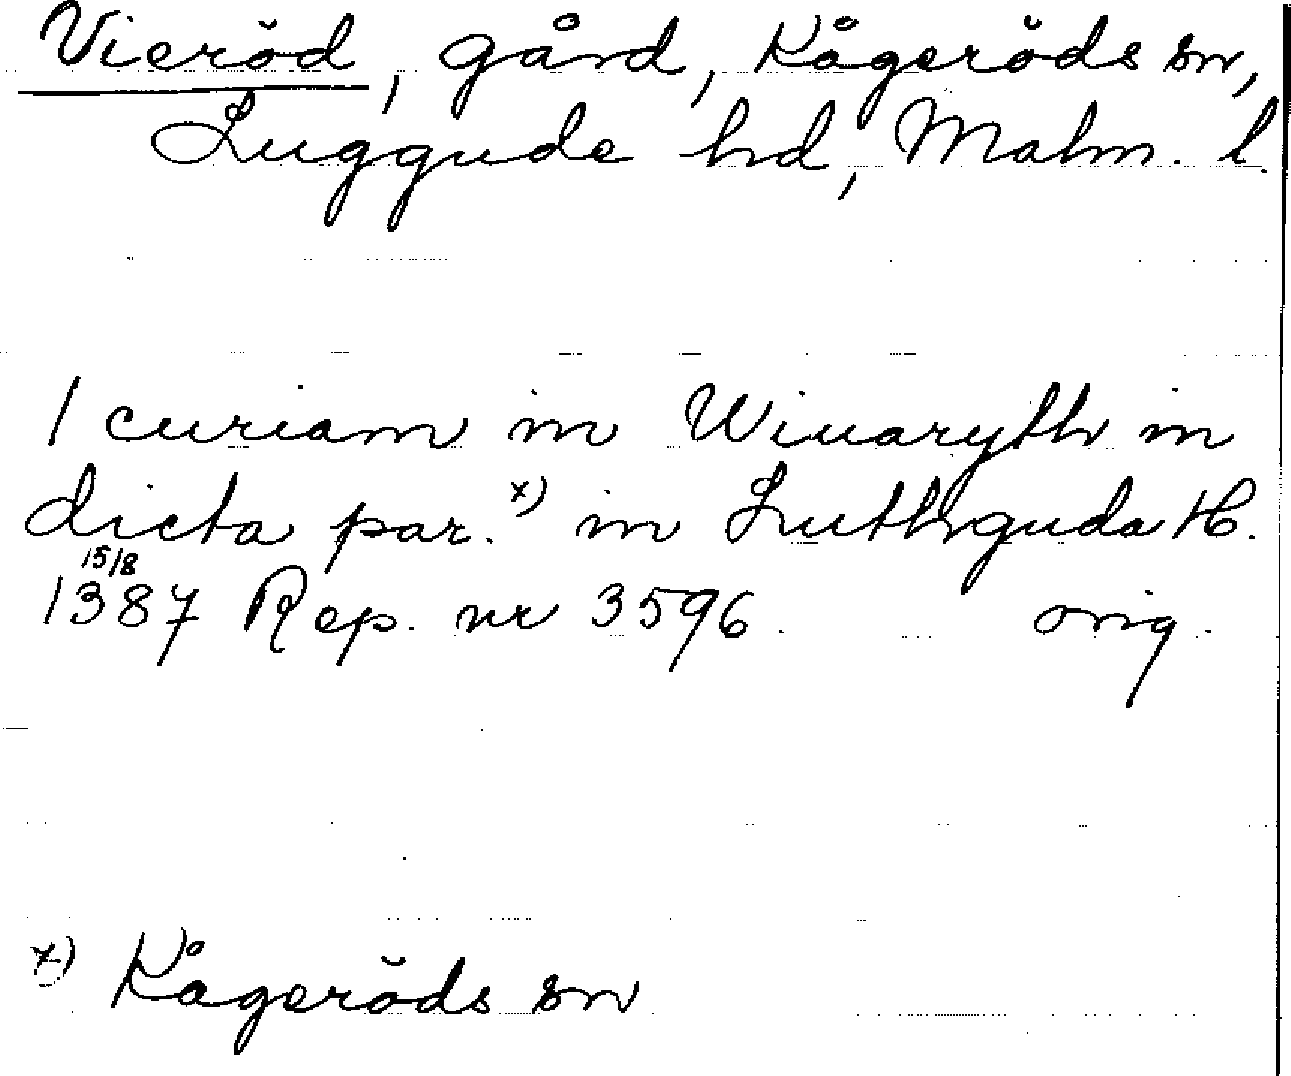 Vieröd, gård, Kågeröds sn,
Luggude hd, Malm. l.
1 curiam in Wiuaryth in
dicta par. x) in Luthguda H.
15/8
1387 Rep. nr 3596. orig.
x) Kågeröds sn